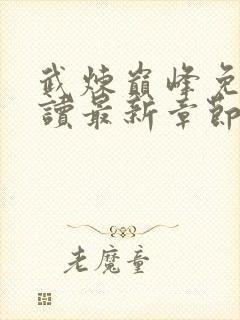 武煉巔峰免
讀最新章節
老魔童